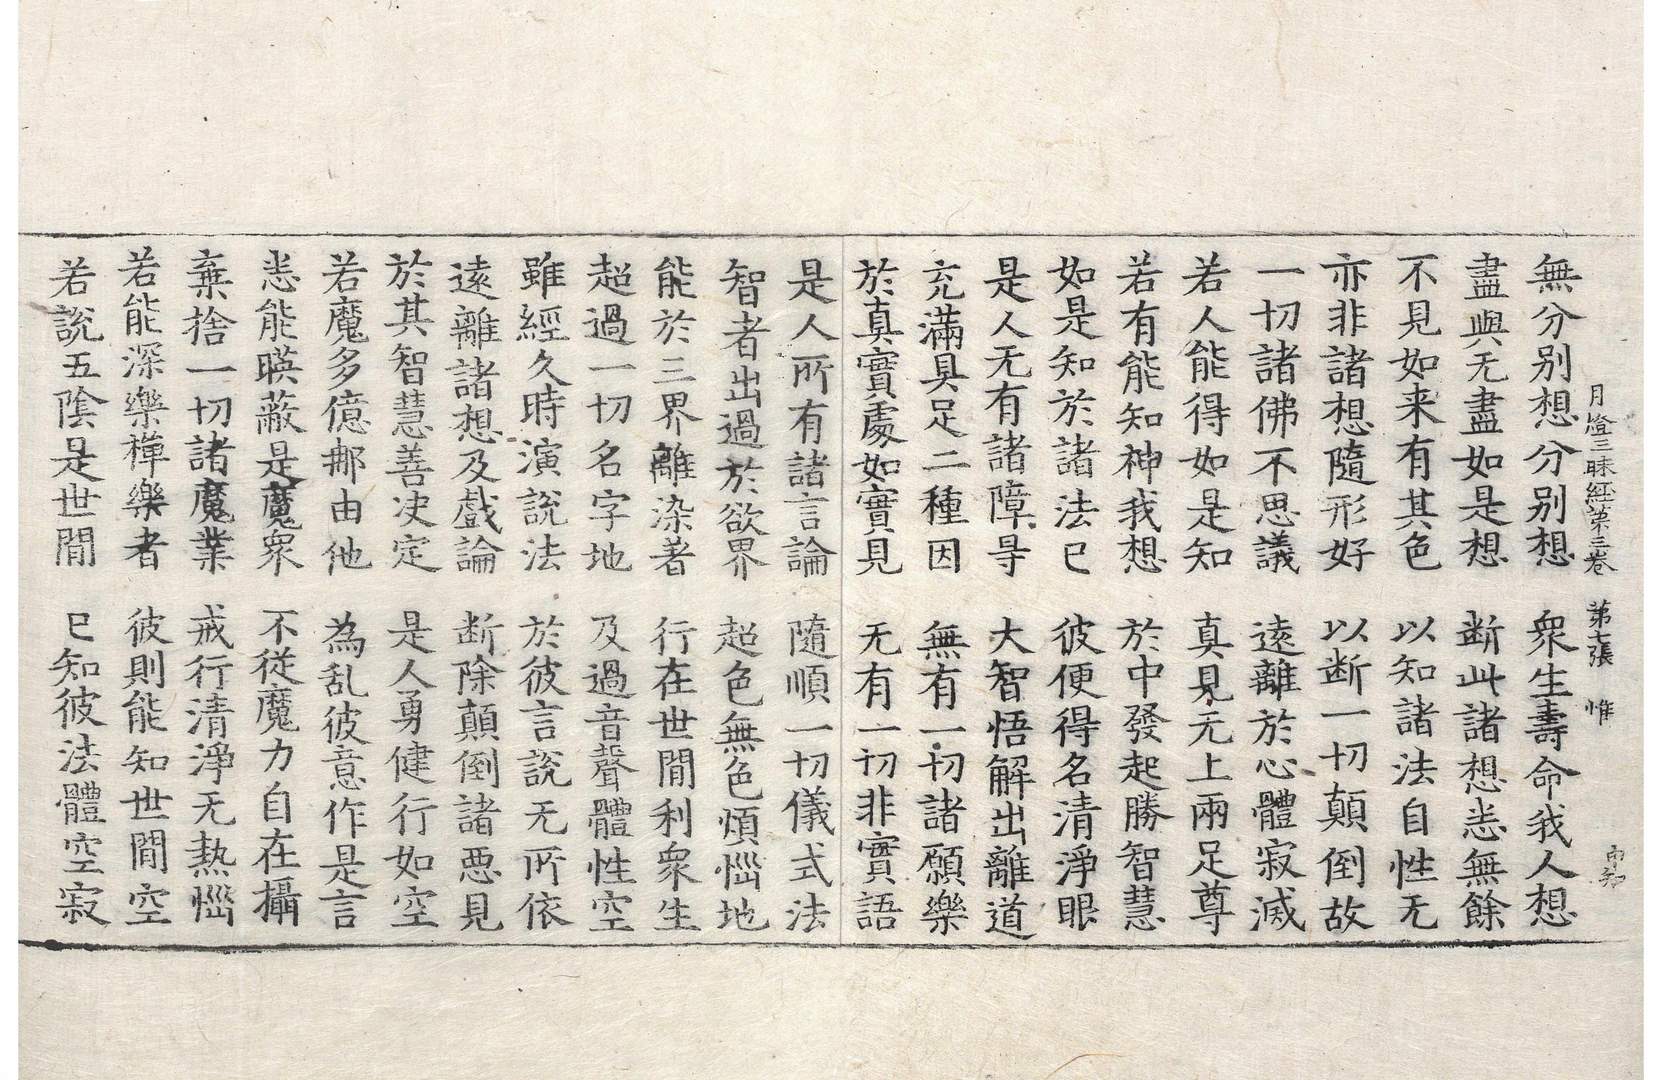 月燈三昧經第三卷 第七張 惟
無分別想分別想 衆生壽命我人想
盡與无盡如是想 断此諸想悉無餘
不見如来有其色 以知諸法自性无
亦非諸想隨形好 以断一切顛倒故
一切諸佛不思議 遠離於心體寂滅
若人能得如是知 真見无上兩足尊
若有能知神我想 於中發起勝智慧
如是知於諸法已 彼便得名清淨眼
是人无有諸障㝵 大智悟解出離道
充滿具足二種因 無有一切諸願樂
於真實處如實見 无有一切非實語
是人所有諸言論 隨順一切儀式法
智者出過於欲界 超色無色煩惱地
能於三界離染著 行在世閒利衆生
超過一切名字地 及過音聲體性空
雖經久時演說法 於彼言說无所依
遠離諸想及戲論 断除顛倒諸惡見
於其智慧善决定 是人勇健行如空
若魔多億那由他 為乱彼意作是言
悉能暎蔽是魔衆 不従魔力自在攝
棄捨一切諸魔業 戒行清淨无熱惱
若能深樂禪樂者 彼則能知世閒空
若說五陰是世閒 已知彼法體空寂